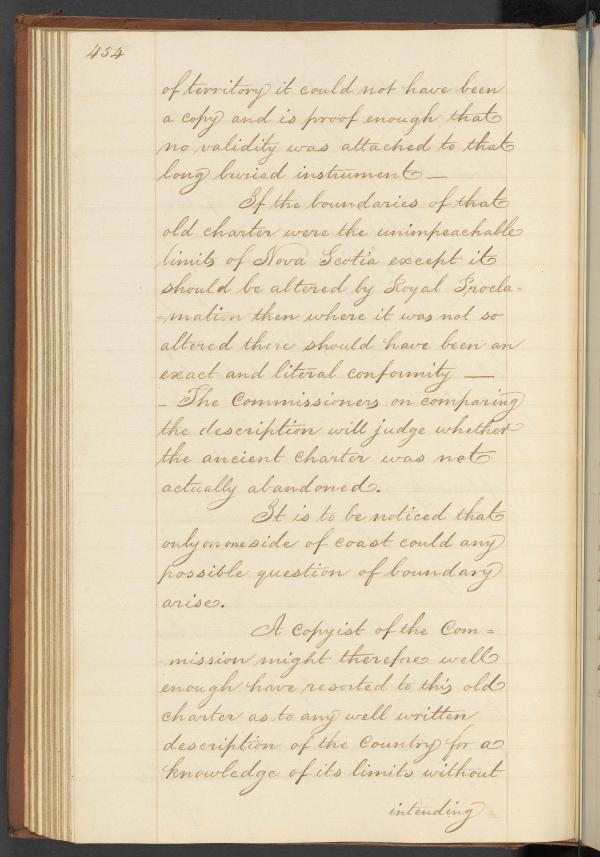 454
of territory it could not have been
a copy and is proof enough that
no validity was attached to that
long buried instrument —
If the boundaries of that
old charter were the unimpeachable
limits of Nova Scotia except it
should be altered by Royal Procla=
=mation then where it was not so
altered there should have been an
exact and literal conformity —
– The Commissioners on comparing
the description will judge whether
the ancient charter was not
actually abandoned.
It is to be noticed that
only on one side of coast could any
possible question of boundary
arise.
A copyist of the Com=
mission might therefore well
enough have resorted to this old
charter as to any well written
description of the Country for a
knowledge of its limits without
intending